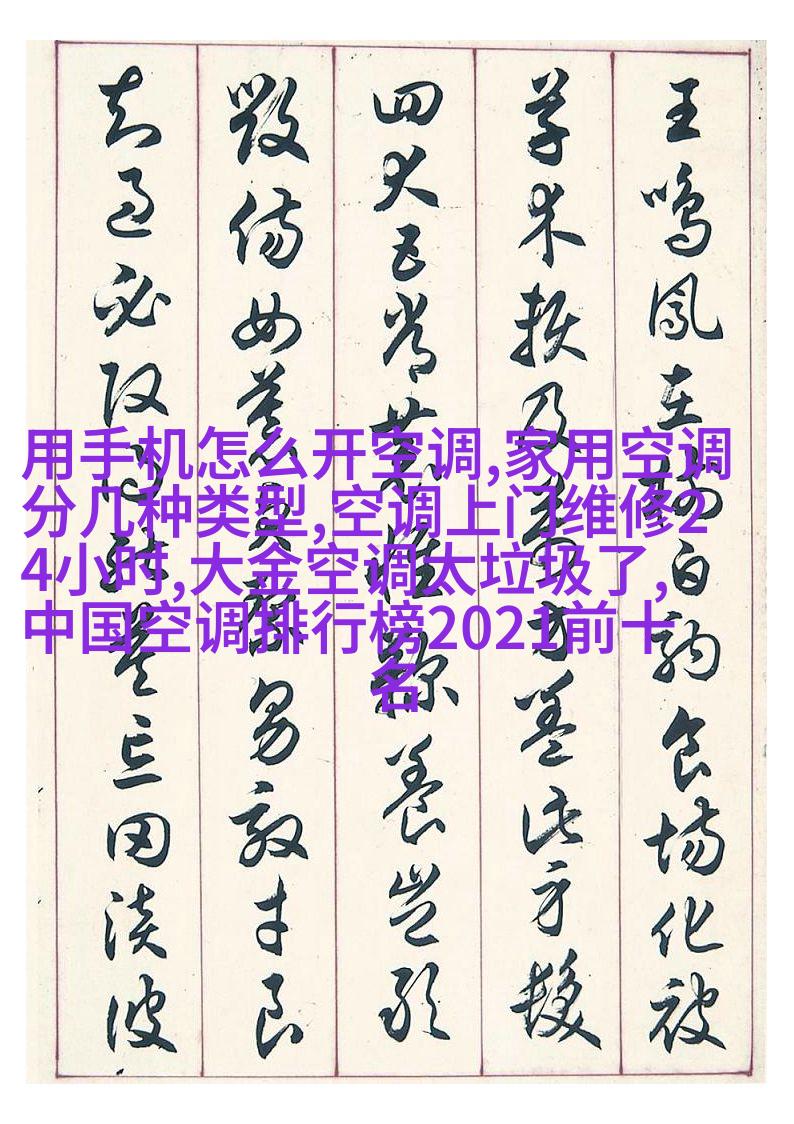 王鳴鳳在樹白駒食場化被
草木賴及萬方蓋此身髮
四大五常恭惟鞠養豈敢
毀傷女慕貞潔男效才良
知過必改得能莫忘罔談彼
用手机怎么开空调,家用空调
分几种类型,空调上门维修2
4小时,大金空调太垃圾了,
中国空调排行榜2021前十
名